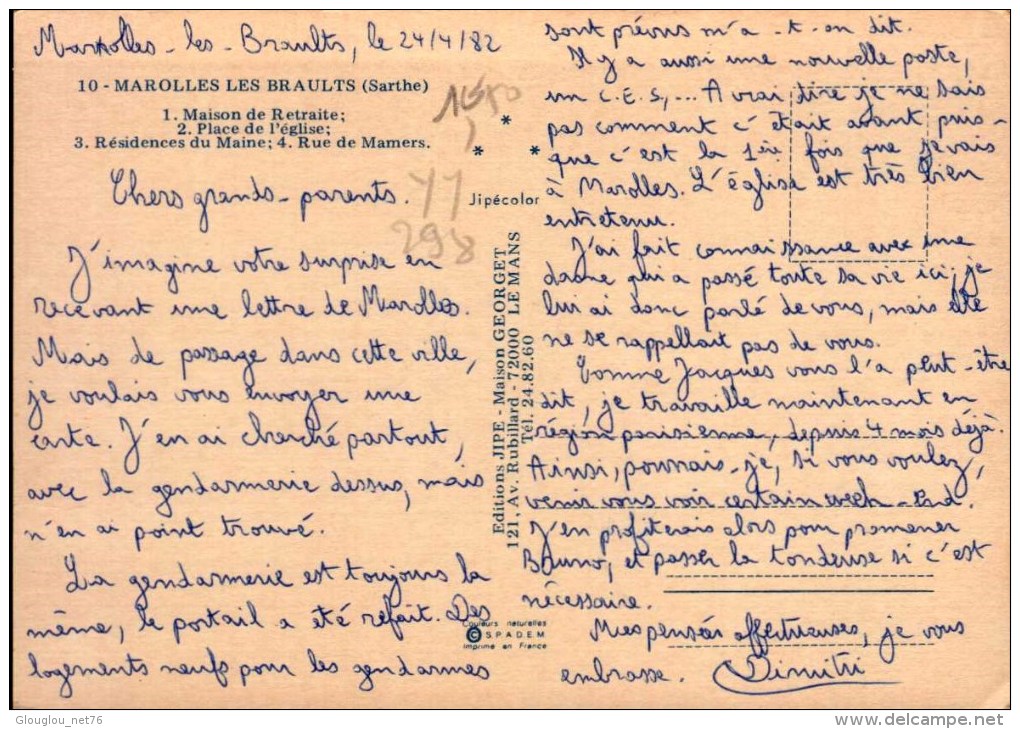 Marolles-les-Braults, le 24/4/82
10 - MAROLLES LES BRAULTS (Sarthe)
1. Maison de Retraite;
2. Place de l'église;
3. Résidences du Maine; 4. Rue de Mamers.
Chers grands-parents.
J'imagine votre surprise en
recevant une lettre de Marolles.
Mais de passage dans cette ville,
je voulais vous envoyer une
carte. J'en ai cherché partout,
avec la gendarmerie dessus, mais
n'en ai point trouvé.
La gendarmerie est toujours la
même, le portail a été refait. Des
logements neufs pour les gendarmes
sont prévus m'a-t-on dit.
Il y a aussi une nouvelle poste,
un C.E.S,... A vrai dire je ne sais
pas comment c'était avant puis-
que c'est la 1ère fois que je vais
à Marolles. L'église est très bien
entretenu.
J'ai fait connaissance avec une
dame qui a passé toute sa vie ici, je
lui ai donc parlé de vous, mais elle
ne se rappellait pas de vous.
Comme Jacques vous l'a peut-être
dit, je travaille maintenant en
région parisienne, depuis 4 mois déjà.
Ainsi, pourrais-je, si vous voulez,
venir vous voir certain week-end.
J'en profiterais alors pour promener
Bruno, et passer la tondeuse si c'est
nécessaire.
Mes pensées affectueuses, je vous
embrasse. Dimitri
* * *
Jipécolor
41
298
Editions JIPE - Maison GEORGET
121, Av. Rubillard - 72000 LE MANS
Tél. 24.82.60
Couleurs naturelles
© S.P.A.D.E.M
Imprimé en France
Glouglou_net76
http://www.delcampe.net